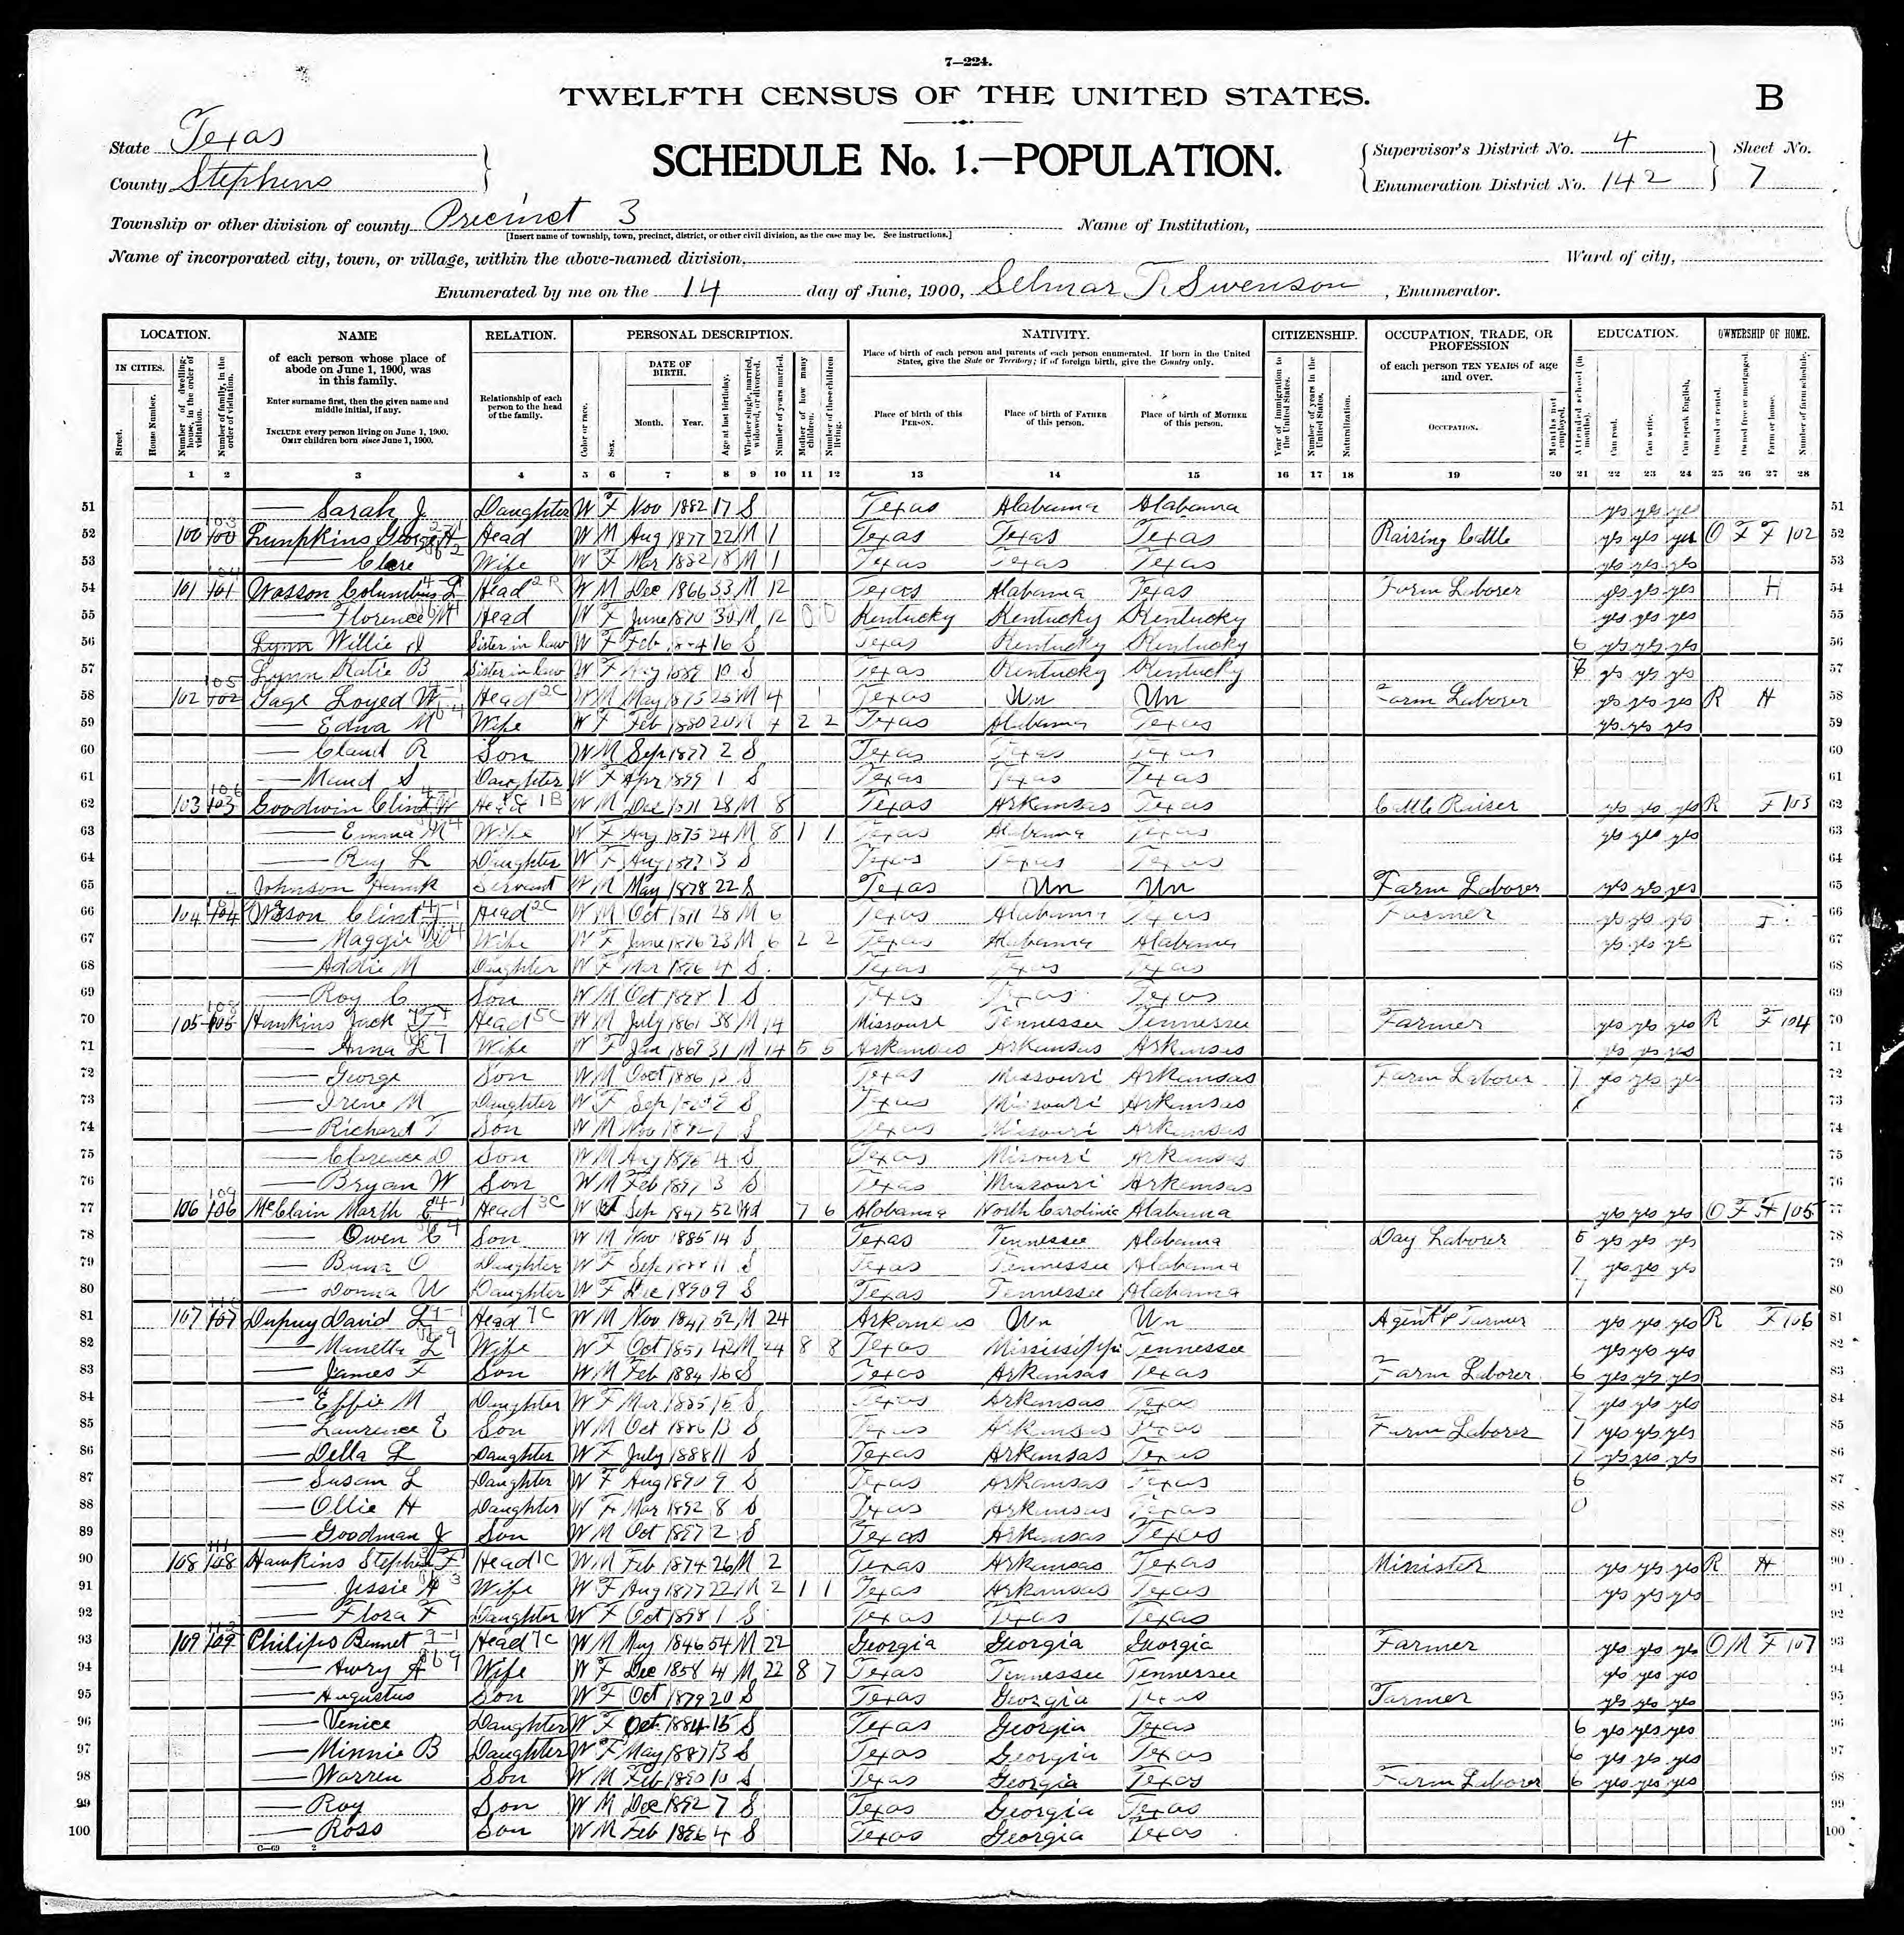 7—224.
TWELFTH CENSUS OF THE UNITED STATES.
B
State Texas
County Stephens
SCHEDULE No. 1.—POPULATION.
Supervisor's District No. 4
Enumeration District No. 142
Sheet No.
7
Township or other division of county Precinct 3
[Insert name of township, town, precinct, district, or other civil division, as the case may be. See instructions.]
Name of Institution,
Name of incorporated city, town, or village, within the above-named division,
Ward of city,
Enumerated by me on the 14 day of June, 1900, Selmar T. Swenson, Enumerator.
LOCATION. NAME RELATION. PERSONAL DESCRIPTION. NATIVITY. CITIZENSHIP. OCCUPATION, TRADE, OR PROFESSION EDUCATION. OWNERSHIP OF HOME.
IN CITIES. Street. House Number. Number of dwelling-house, in the order of visitation. Number of family, in the order of visitation.
of each person whose place of abode on June 1, 1900, was in this family.
Enter surname first, then the given name and middle initial, if any.
INCLUDE every person living on June 1, 1900. OMIT children born since June 1, 1900.
Relationship of each person to the head of the family.
Color or race. Sex. DATE OF BIRTH. Month. Year. Age at last birthday. Whether single, married, widowed, or divorced. Number of years married. Mother of how many children. Number of these children living.
Place of birth of each person and parents of each person enumerated. If born in the United States, give the State or Territory; if of foreign birth, give the Country only.
Place of birth of this PERSON. Place of birth of FATHER of this person. Place of birth of MOTHER of this person.
Year of immigration to the United States. Number of years in the United States. Naturalization.
of each person TEN YEARS of age and over.
OCCUPATION. Months not employed. Attended school (in months). Can read. Can write. Can speak English. Owned or rented. Owned free or mortgaged. Farm or house. Number of farm schedule.
1 2 3 4 5 6 7 8 9 10 11 12 13 14 15 16 17 18 19 20 21 22 23 24 25 26 27 28
51 — Sarah J. Daughter W F Nov 1882 17 S Texas Alabama Alabama yes yes yes 51
52 100 100 Lumpkins George H Head W M Aug 1877 22 M 1 Texas Texas Texas Raising Cattle yes yes yes O F F 102 52
53 — Clore Wife W F Mar 1882 18 M 1 Texas Texas Texas yes yes yes 53
54 101 101 Wasson Columbus L Head W M Dec 1866 33 M 12 Texas Alabama Texas Farm Laborer yes yes yes H 54
55 — Florence M Head W F June 1870 30 M 12 0 0 Kentucky Kentucky Kentucky yes yes yes 55
56 Lynn Willie J Sister in law W F Feb 16 S Texas Kentucky Kentucky 6 yes yes yes 56
57 Lynn Katie B Sister in law W F Aug 1889 10 S Texas Kentucky Kentucky yes yes yes 57
58 102 102 Gage Loyed W Head W M May 1875 25 M 4 Texas Un Un Farm Laborer yes yes yes R H 58
59 — Edna M Wife W F Feb 1880 20 M 4 2 2 Texas Alabama Texas yes yes yes 59
60 — Claud R Son W M Sep 1897 2 S Texas Texas Texas 60
61 — Maud S Daughter W F Apr 1899 1 S Texas Texas Texas 61
62 103 103 Goodwin Clint W Head W M Dec 1871 28 M 8 Texas Arkansas Texas Cattle Raiser yes yes yes R F 103 62
63 — Emma M Wife W F Aug 1875 24 M 8 1 1 Texas Alabama Texas yes yes yes 63
64 — Ray L Daughter W F Aug 3 S Texas Texas Texas 64
65 Johnson Hunk Servant W M May 1878 22 S Texas Un Un Farm Laborer yes yes yes 65
66 104 104 Wasson Clint Head W M Oct 1871 28 M 6 Texas Alabama Texas Farmer yes yes yes F 66
67 — Maggie Wife W F June 1876 23 M 6 2 2 Texas Alabama Alabama yes yes yes 67
68 — Addie M Daughter W F Mar 1896 4 S Texas Texas Texas 68
69 — Roy C Son W M Oct 1898 1 S Texas Texas Texas 69
70 105 105 Hawkins Jack T Head W M July 1861 38 M 14 Missouri Tennessee Tennessee Farmer yes yes yes R F 104 70
71 — Anna L Wife W F Jan 1869 31 M 14 5 5 Arkansas Arkansas Arkansas yes yes yes 71
72 — George Son W M Oct 1886 13 S Texas Missouri Arkansas Farm Laborer 7 yes yes yes 72
73 — Irene M Daughter W F Sep 9 S Texas Missouri Arkansas 73
74 — Richard T Son W M Nov 1892 7 S Texas Missouri Arkansas 74
75 — Clarence D Son W M Aug 1895 4 S Texas Misouri Arkansas 75
76 — Bryan W Son W M Feb 1897 3 S Texas Missouri Arkansas 76
77 106 106 McClain Marth E Head W Sep 1847 52 Wd 7 6 Alabama North Carolina Alabama yes yes yes O F F 105 77
78 — Owen C Son W M Nov 1885 14 S Texas Tennessee Alabama Day Laborer 5 yes yes yes 78
79 — Buna O Daughter W F Sep 1888 11 S Texas Tennessee Alabama 7 yes yes yes 79
80 — Donna W Daughter W F Dec 1890 9 S Texas Tennessee Alabama 7 80
81 107 107 Dupuy David L Head W M Nov 1847 52 M 24 Arkansas Un Un Agent & Farmer yes yes yes R F 106 81
82 — Manetta L Wife W F Oct 1857 42 M 24 8 8 Texas Mississippi Tennessee yes yes yes 82
83 — James F Son W M Feb 1884 16 S Texas Arkansas Texas Farm Laborer 6 yes yes yes 83
84 — Effie M Daughter W F Mar 1885 15 S Texas Arkansas Texas 7 yes yes yes 84
85 — Laurence E Son W M Oct 1886 13 S Texas Arkansas Texas Farm Laborer 7 yes yes yes 85
86 — Della L Daughter W F July 1888 11 S Texas Arkansas Texas 7 yes yes yes 86
87 — Susan L Daughter W F Aug 1890 9 S Texas Arkansas Texas 6 87
88 — Ollie H Daughter W F Mar 1892 8 S Texas Arkansas Texas 0 88
89 — Goodman J Son W M Oct 1897 2 S Texas Arkansas Texas 89
90 108 108 Hawkins Stephen F Head W M Feb 1874 26 M 2 Texas Arkansas Texas Minister yes yes yes R H 90
91 — Jessie H Wife W F Aug 1877 22 M 2 1 1 Texas Arkansas Texas yes yes yes 91
92 — Flora F Daughter W F Oct 1898 1 S Texas Texas Texas 92
93 109 109 Philips Bennet Head W M May 1846 54 M 22 Georgia Georgia Georgia Farmer yes yes yes O M F 107 93
94 — Awry A Wife W F Dec 1858 41 M 22 8 7 Texas Tennessee Tennessee yes yes yes 94
95 — Augustus Son W F Oct 1879 20 S Texas Georgia Texas Farmer yes yes yes 95
96 — Venice Daughter W F Oct 1884 15 S Texas Georgia Texas 6 yes yes yes 96
97 — Minnie B Daughter W F May 1887 13 S Texas Georgia Texas 6 yes yes yes 97
98 — Warren Son W M Feb 1890 10 S Texas Georgia Texas Farm Laborer 6 yes yes yes 98
99 — Roy Son W M Dec 1892 7 S Texas Georgia Texas 99
100 — Ross Son W M Feb 1896 4 S Texas Georgia Texas 100
C—69 2